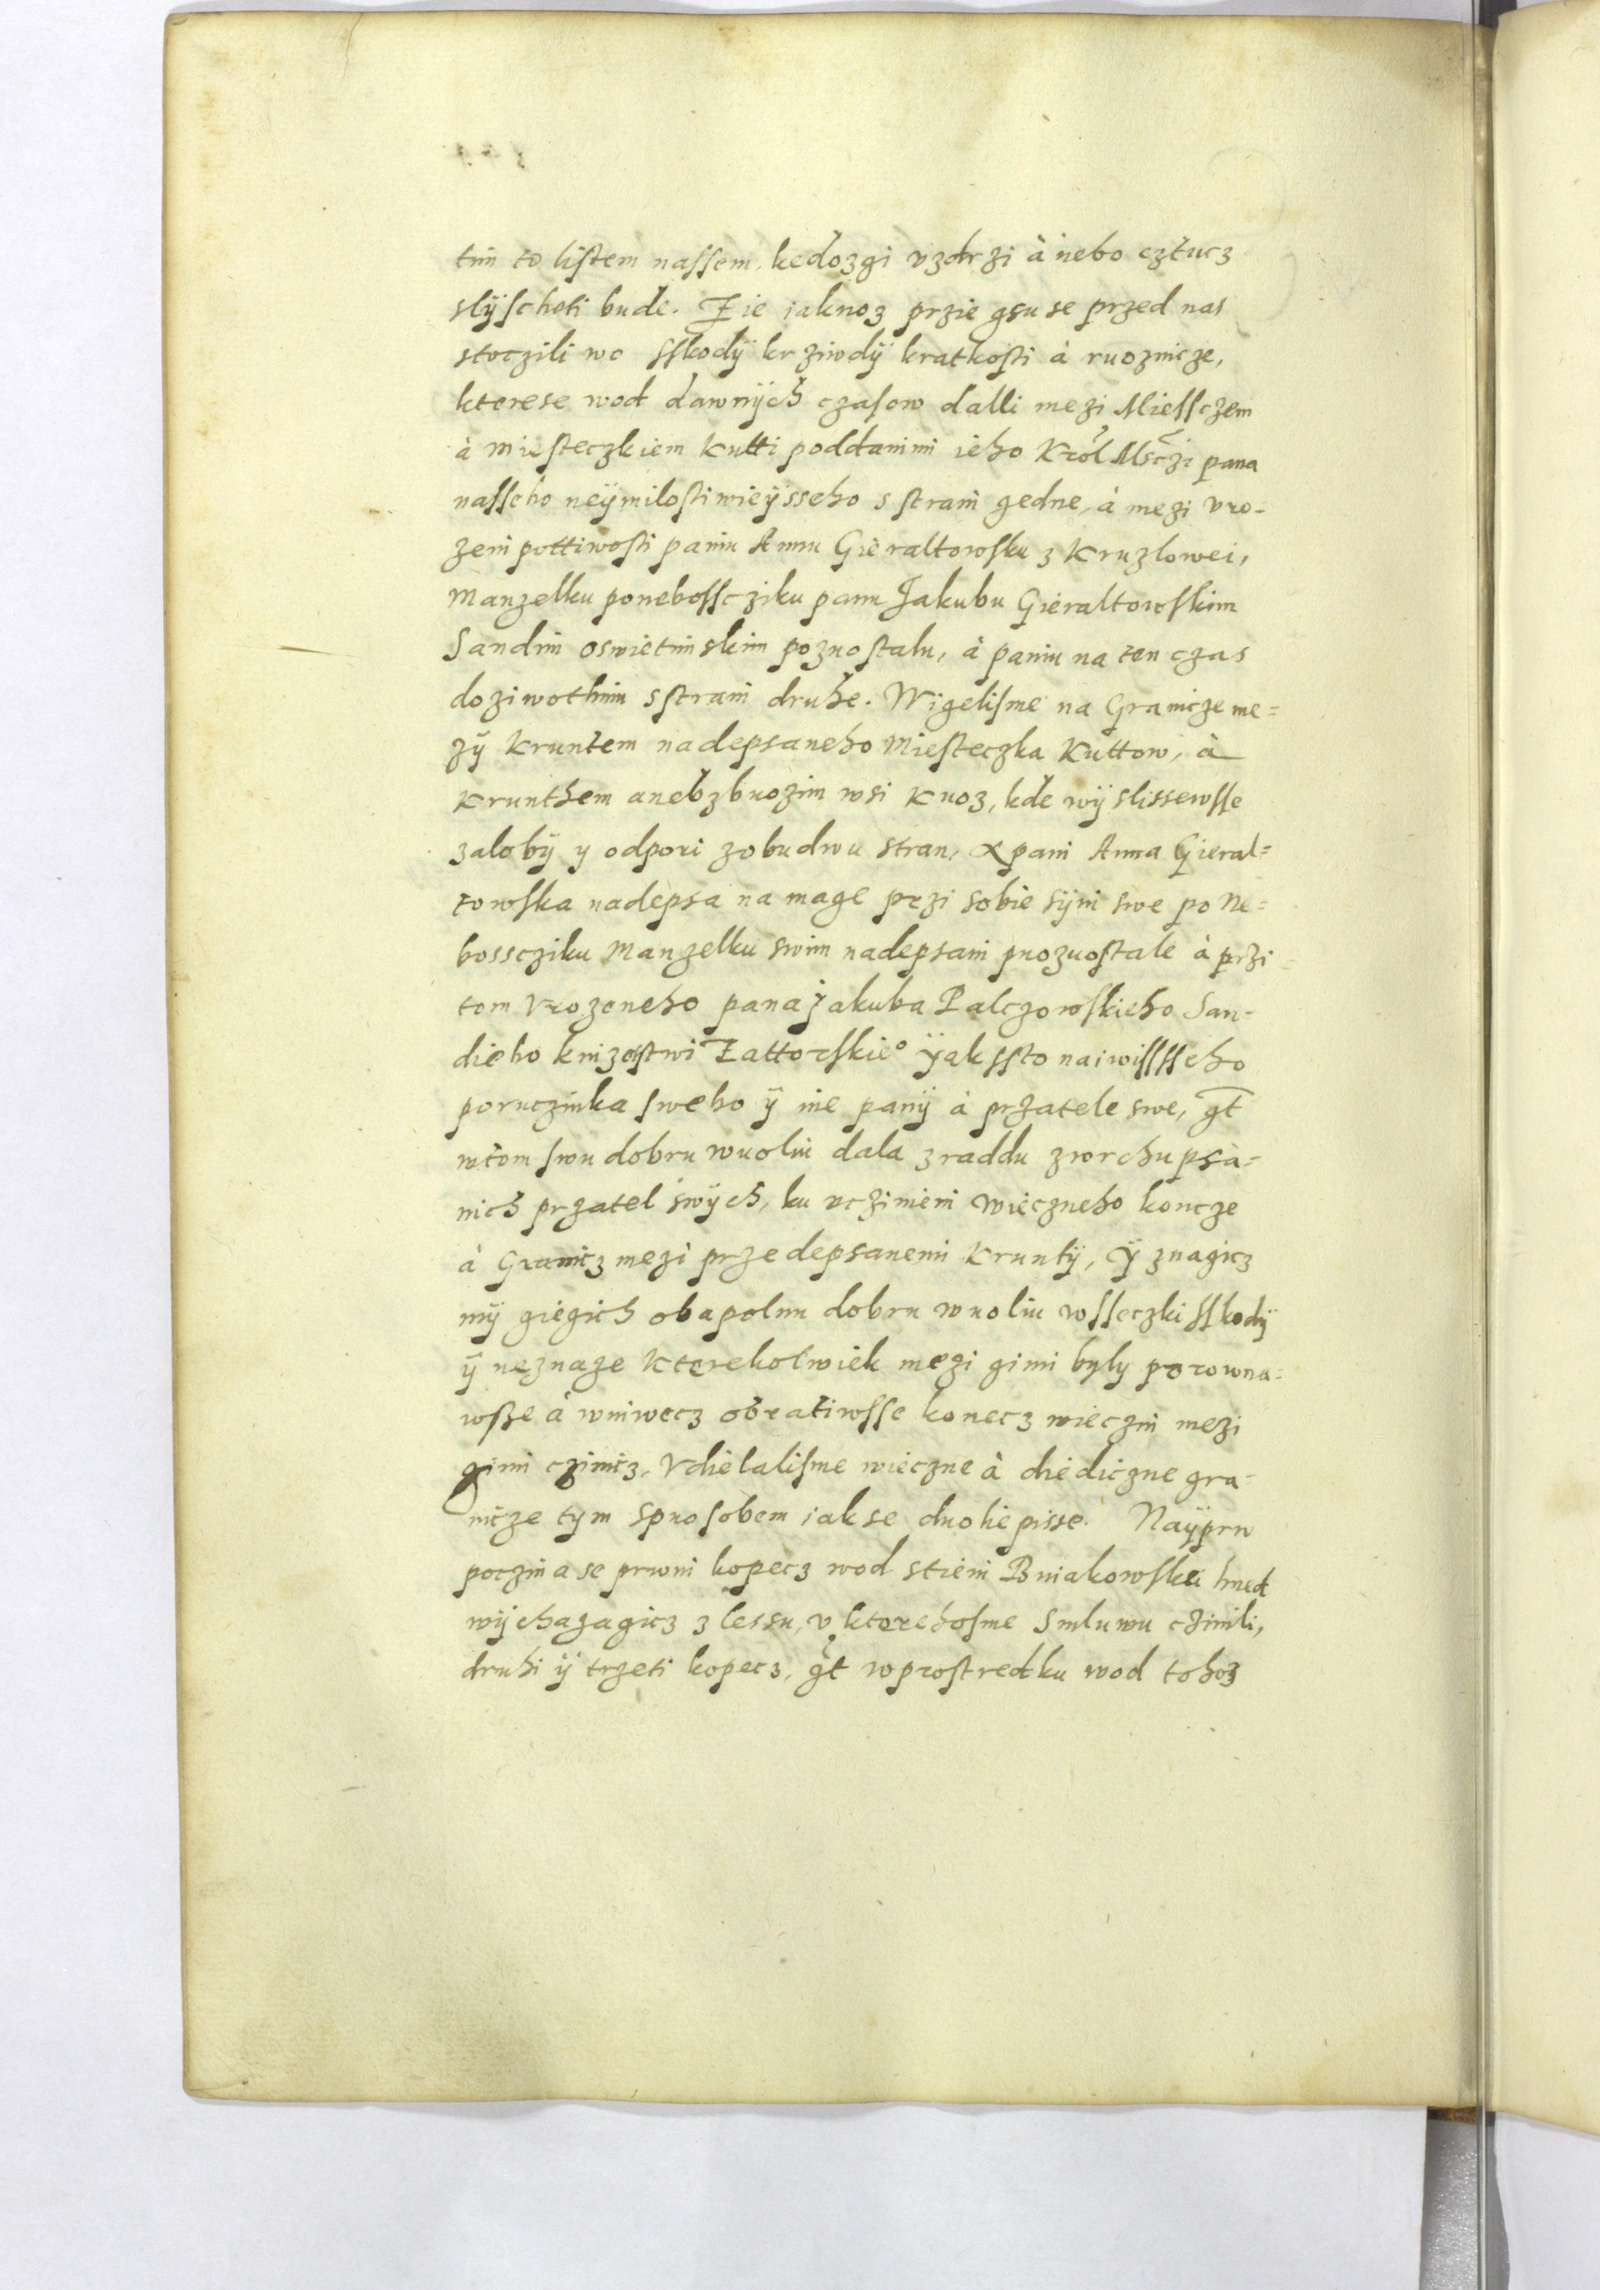 tim to listem nassem, kedozgi vzdrzi à nebo cztucz
slÿscheti bude. Zie iaknoz przie gsu se przed nas
stoczili wo sskodÿ krziwdÿ kratkosti à ruoznicze,
kterese wod dawnÿch czasow dalli mezi Miessczem
à miesteczkiem Kutti poddanimi ieho Krol Msczi pana
nasseho neÿmilostiwieÿsseho s strani gedne, à mezi vro-
zeni pottiwosti paniu Annu Gieraltowsku z Kruzlowei,
Manzelku ponebossczikupanu Jakubu Gieraltowskim
Sandim oswietimskim pozuostalu, à paniu na ten czas
doziwothniu sstrani druhe. Wigelisme na Granicze me-
zÿ Kruntem nadepsaneho Miesteczka Kuttow, à
Krunthem anebzbuozim wsi Kuoz, kde wÿslissewsse
zalobÿ y odpori zobudwu stran, pani Anna Gieral-
towska nadepsa na mage przi sobie sÿni swe po Ne-
bossczikuManzelku swim nadepsani puozuostale à przi-
tom Vrozeneho pana Jakuba Palczowskieho San-
dieho knizestwi Zattorskie° ÿakssto naiwissseho
porucznika sweho ÿ ine panÿ à przatele swe, gt
wtom swu dobru wuoliu dala zraddu zwrchu psa-
nich przatel swÿch, ku vczinieni wieczneho koncze
à Granicz mezi przedepsanemi Kruntÿ, ÿ znagicz
mÿ giegich obapolnu dobru wuoliu wsseczki sskodÿ
ÿ neznaze kterekolwiek mezi gimi byly porowna-
wsse à wniwecz obratiwsse konecz wieczni mezi
gimi czinicz, Vdielalisme wieczne à diediczne gra-
nicze tym spuosobem iakse duolie pisse. Naÿprw
poczina se prwni kopecz wod stieni Bniakowskei hned
wÿchazagicz z lessu, v ktorehosme Smluwu czinili,
druhi ÿ trzeti kopecz, gt wprostredku wod tohoz